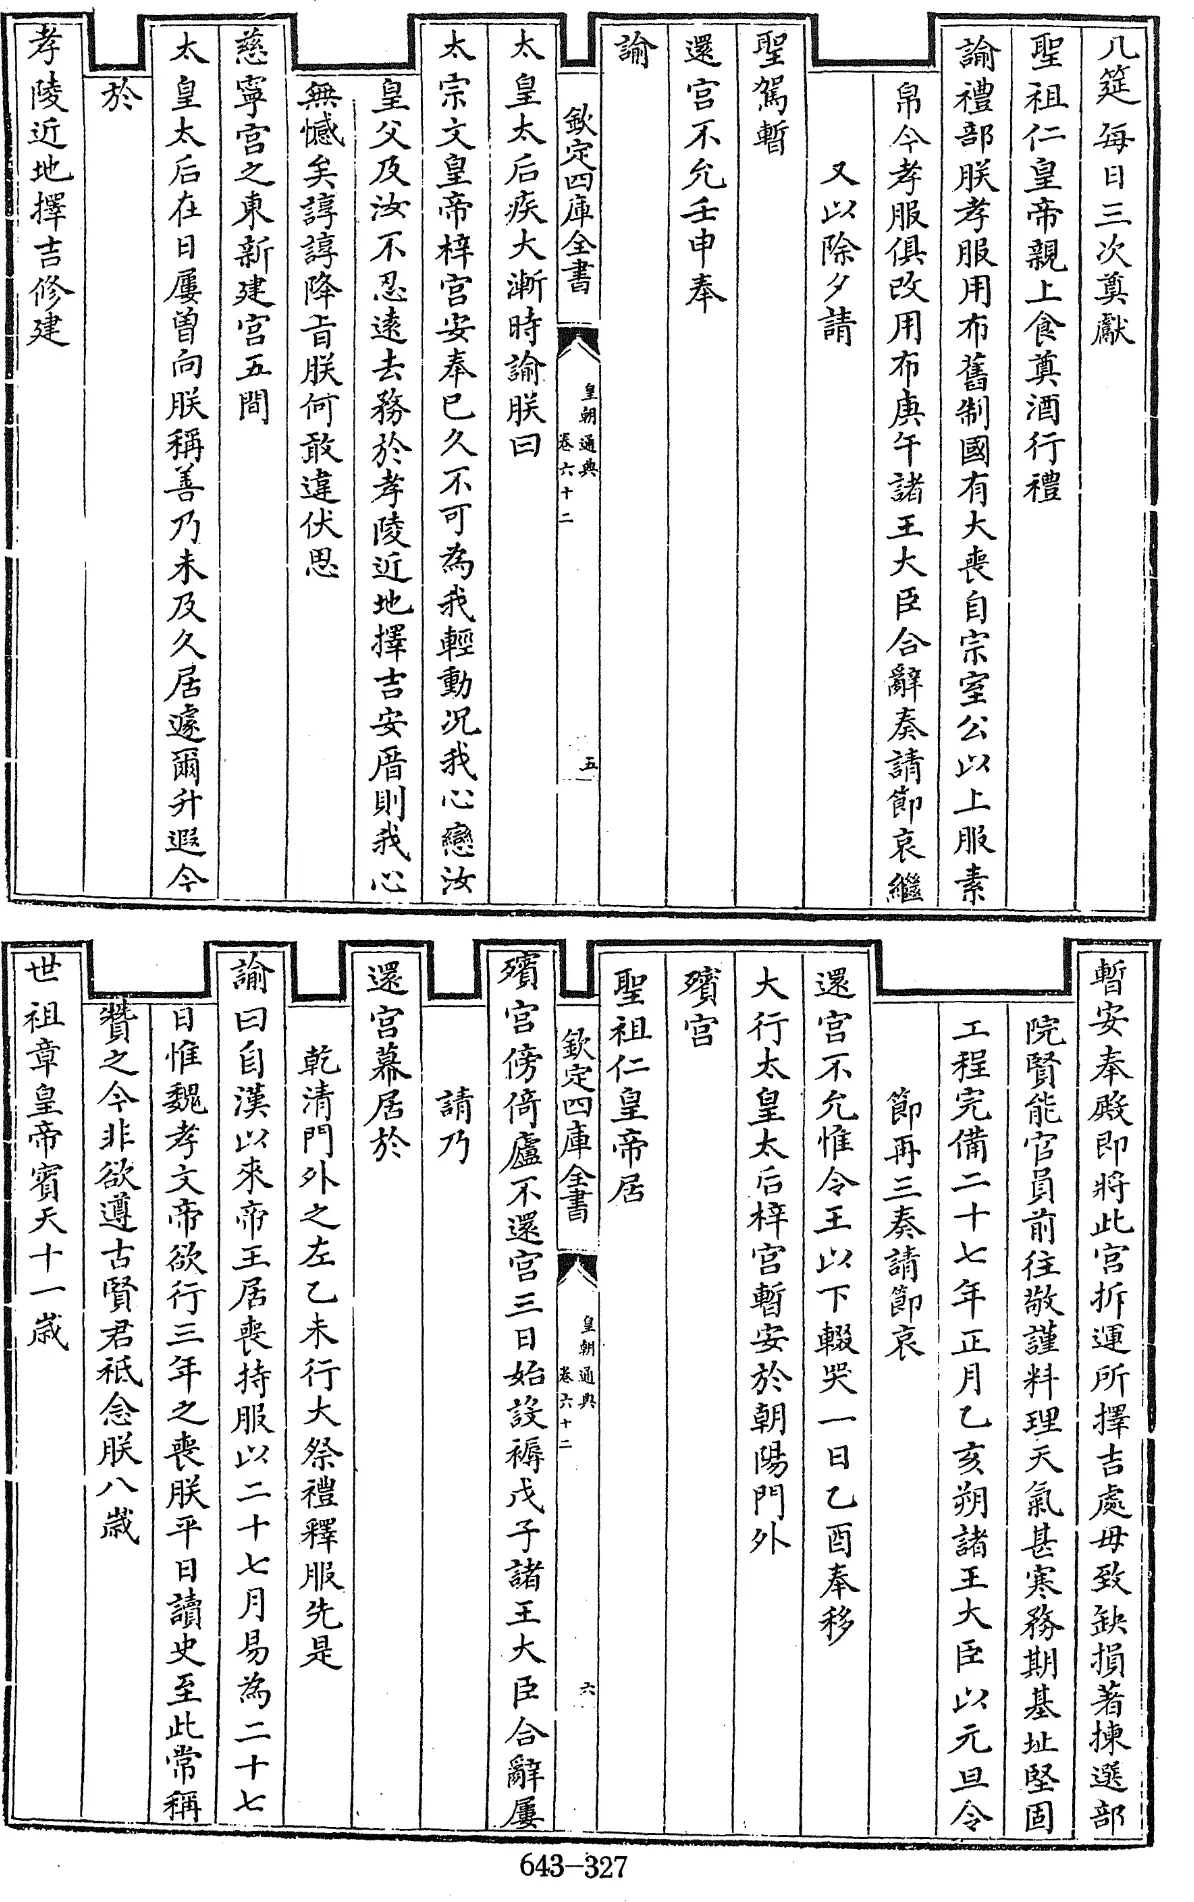 几筵每日三次奠獻
聖祖仁皇帝親上食奠酒行禮
諭禮部朕孝服用布舊制國有大喪自宗室公以上服素
帛今孝服俱改用布庚午諸王大臣合辭奏請節哀繼
又以除夕請
聖駕暫
還宮不允壬申奉
諭
欽定四庫全書
皇朝通典
卷六十二
五
太皇太后疾大漸時諭朕曰
太宗文皇帝梓宮安奉已久不可為我輕動况我心戀汝
皇父及汝不忍遠去務於孝陵近地擇吉安厝則我心
無憾矣諄諄降旨朕何敢違伏思
慈寧宮之東新建宮五間
太皇太后在日屢曾向朕稱善乃未及久居遽爾升遐今
於
孝陵近地擇吉修建
暫安奉殿即將此宮拆運所擇吉處毋致缺損著揀選部
院賢能官員前往敬謹料理天氣甚寒務期基址堅固
工程完備二十七年正月乙亥朔諸王大臣以元旦令
節再三奏請節哀
還宮不允惟令王以下輟哭一日乙酉奉移
大行太皇太后梓宮暫安於朝陽門外
殯宮
聖祖仁皇帝居
欽定四庫全書
皇朝通典
卷六十二
六
殯宮傍倚廬不還宮三日始設褥戊子諸王大臣合辭屢
請乃
還宮幕居於
乾清門外之左乙未行大祭禮釋服先是
諭曰自漢以來帝王居喪持服以二十七月易為二十七
日惟魏孝文帝欲行三年之喪朕平日讀史至此常稱
贊之今非欲遵古賢君祗念朕八歲
世祖章皇帝賓天十一歲
643-327